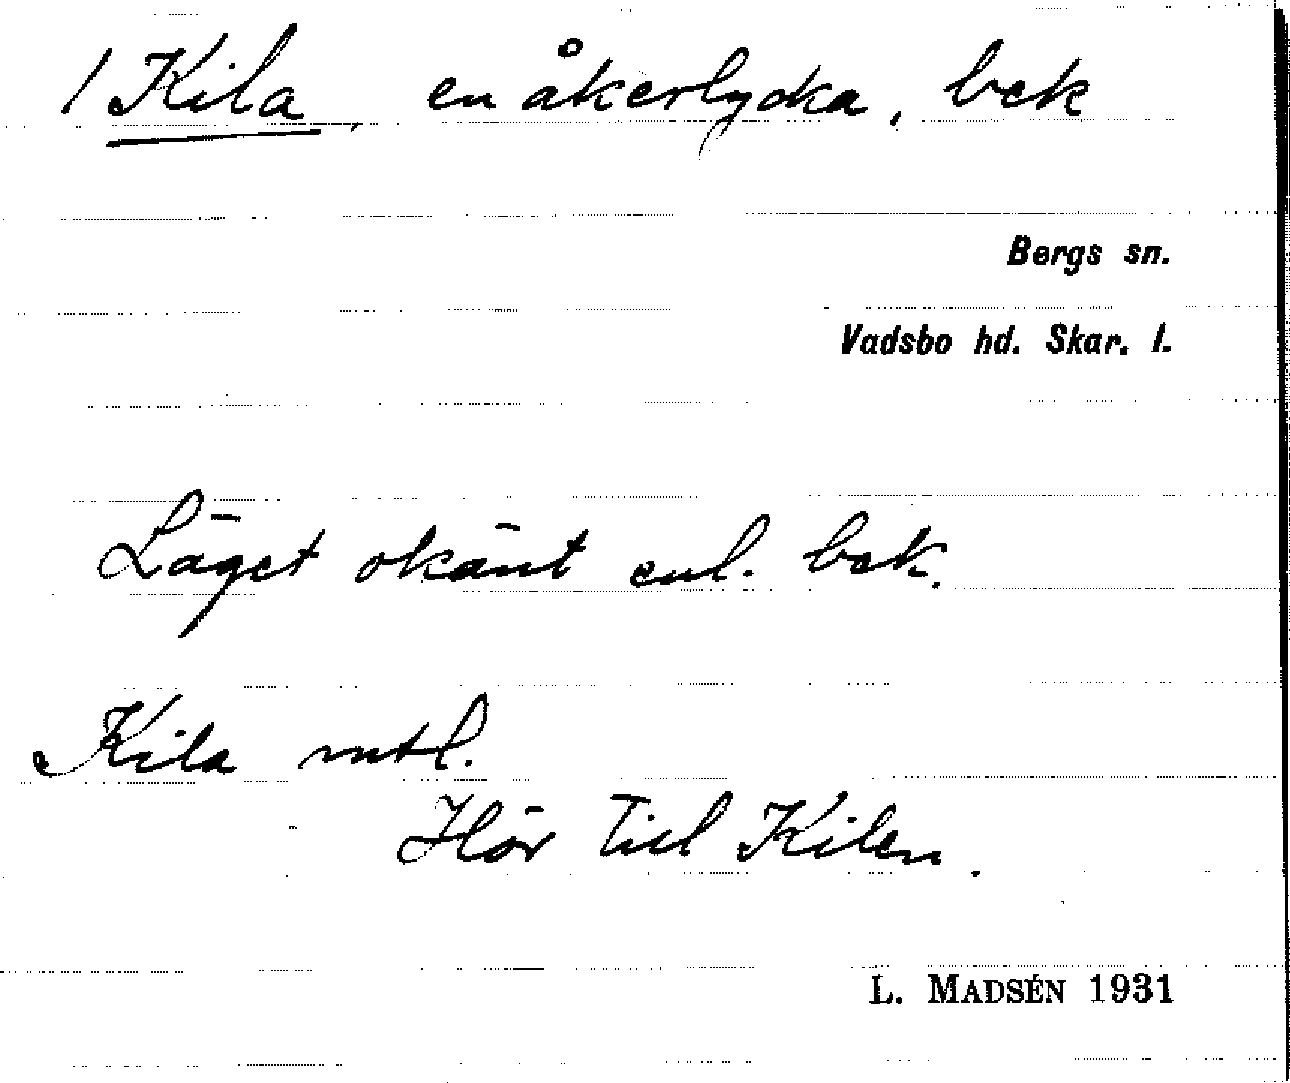 / Kila, en åkerlycka, bek
Bergs sn.
Vadsbo hd. Skar. l.
Läget okänt enl. bek.
Kila mtl.
Hör till Kilen.
L. MADSÉN 1931